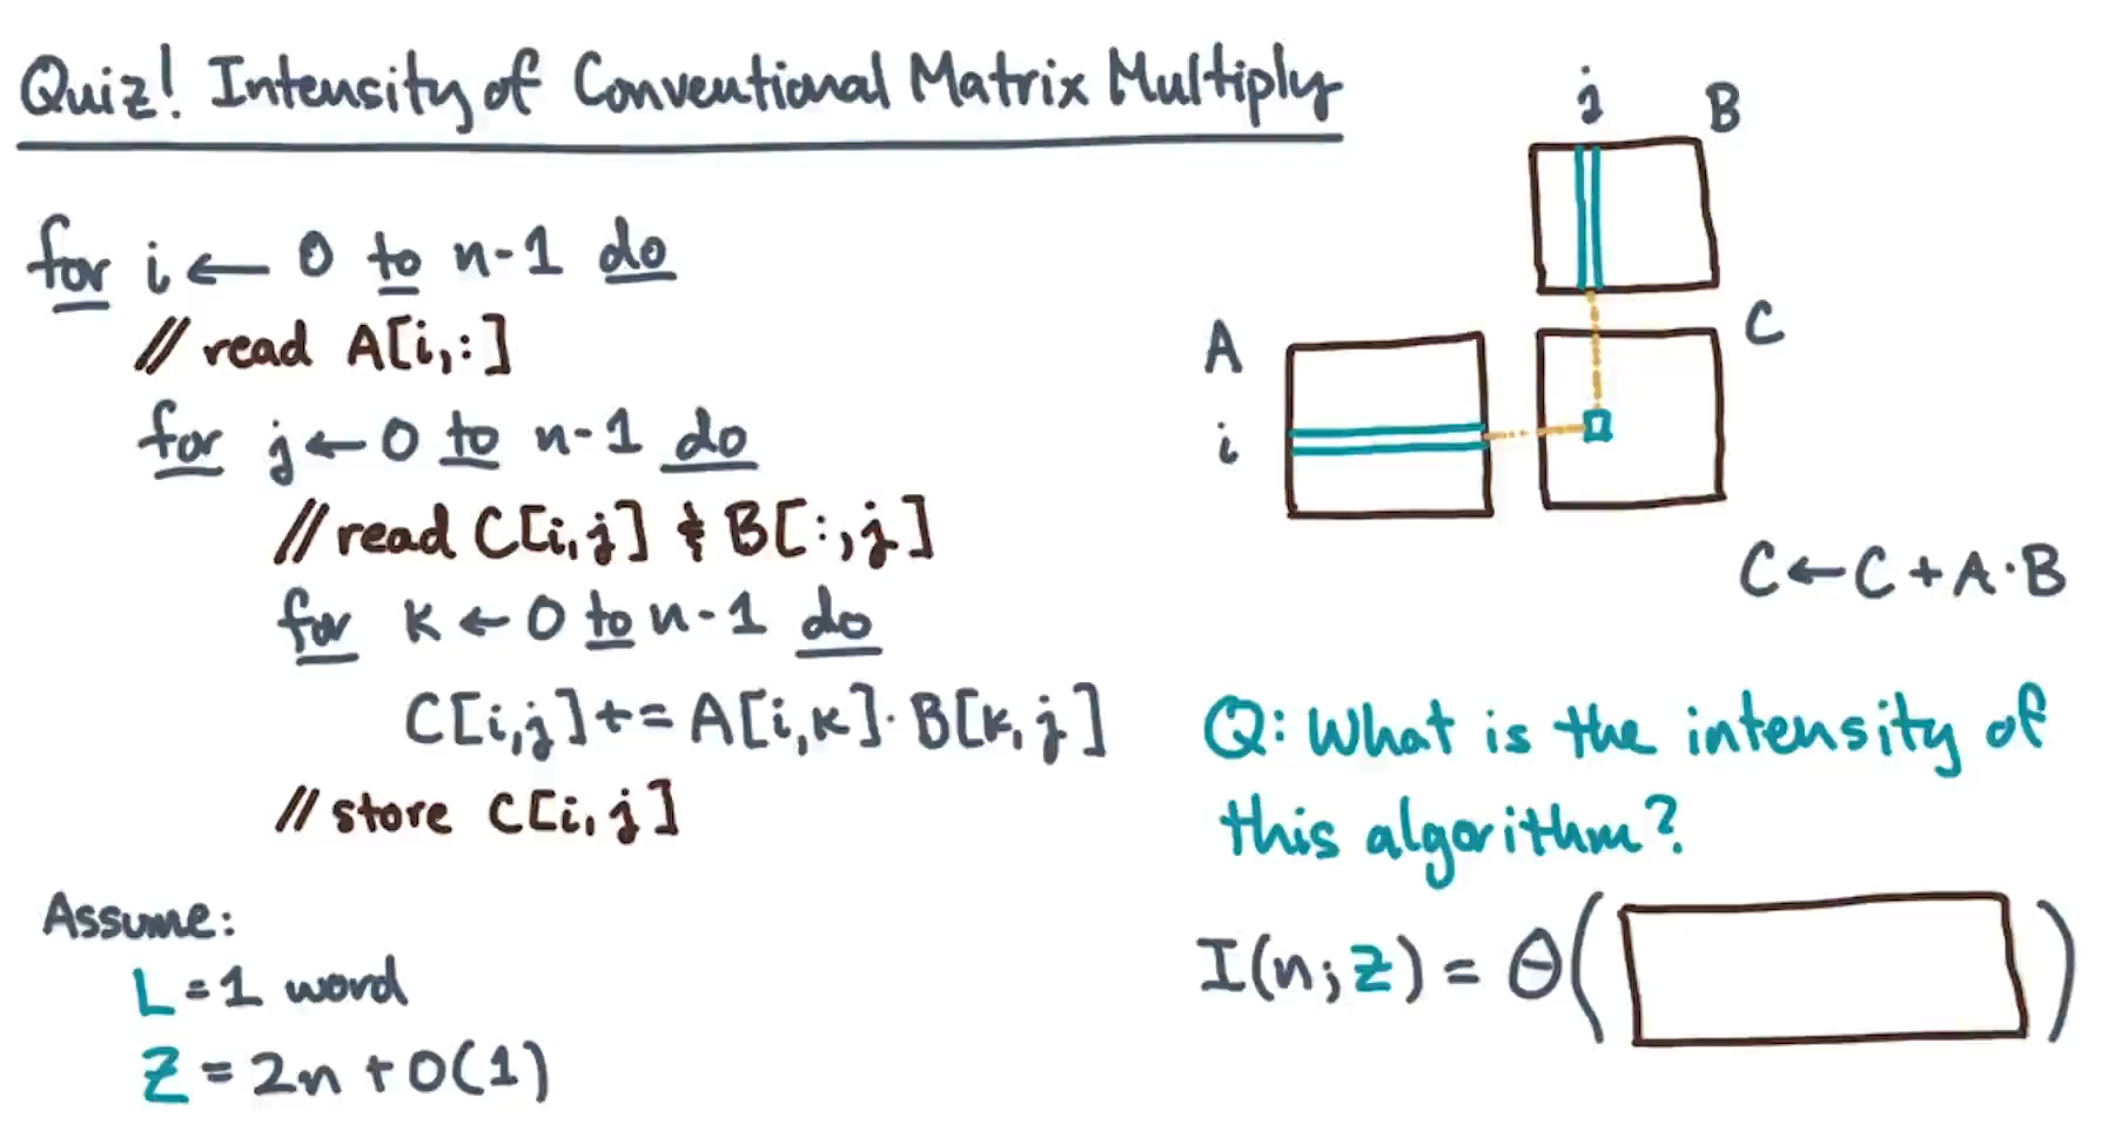 Quiz! Intensity of Conventional Matrix Multiply
for i ← 0 to n-1 do
// read A[i,:]
for j ← 0 to n-1 do
// read C[i,j] & B[:,j]
for k ← 0 to n-1 do
C[i,j] += A[i,k] · B[k,j]
// store C[i,j]
Assume:
L = 1 word
Z = 2n + O(1)
j
B
A
C
i
C ← C + A · B
Q: What is the intensity of
this algorithm?
I(n; Z) = Θ( )